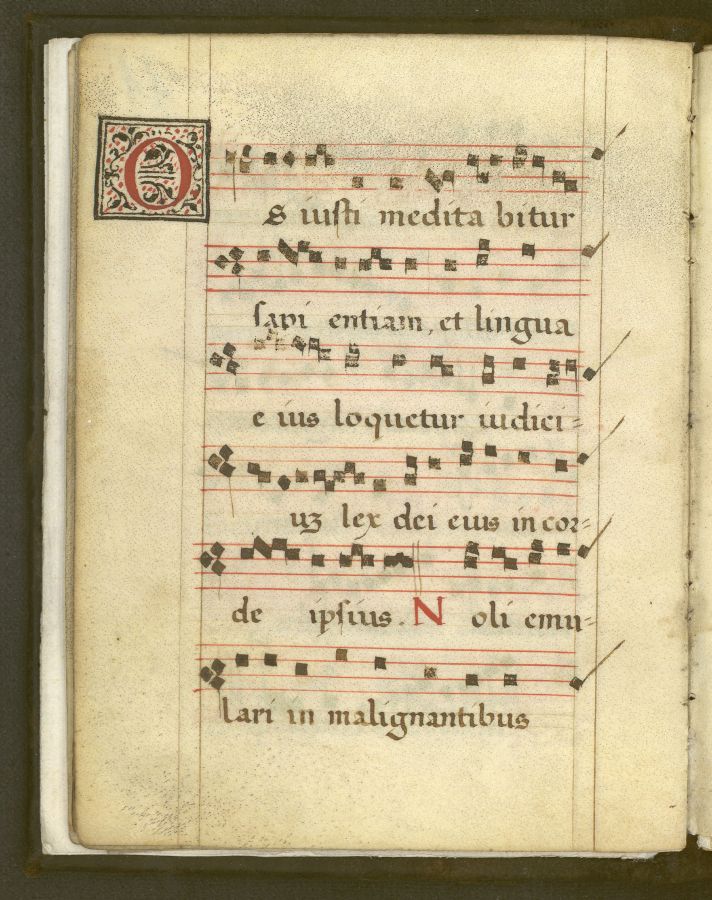 OS iusti medita bitur
sapi entiam, et lingua
e ius loquetur iudici=
uʒ lex dei eius in cor=
de ipsius. Noli emu=
lari in malignantibus